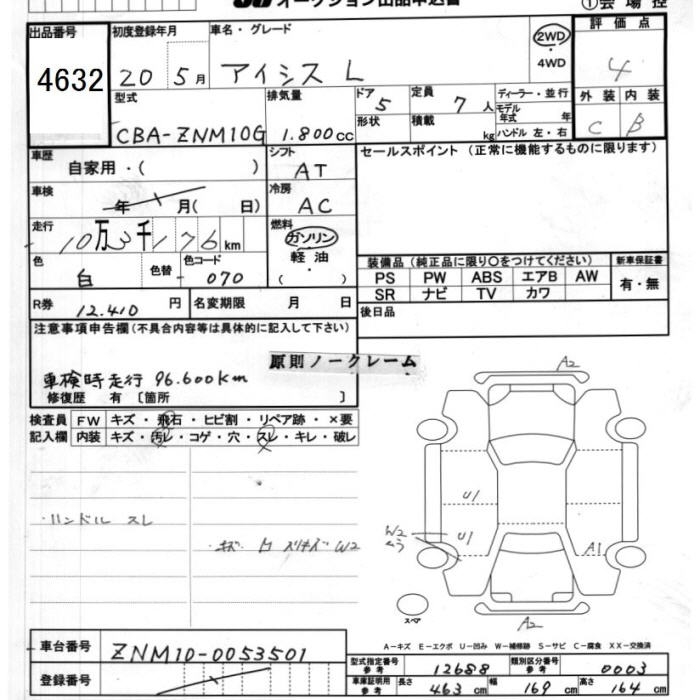 オークション出品申込書
①会場控
出品番号 初度登録年月 車名・グレード 2WD 評価点
4632 20 5月 アイシス L 4WD 4
型式 排気量 ドア 5 定員 7人 ディーラー・並行 外装 内装
CBA-ZNM10G 1.800cc 形状 積載 kg モデル年式 年 C B
ハンドル 左・右
車歴 自家用・( ) シフト AT セールスポイント (正常に機能するものに限ります)
車検 年 月( 日) 冷房 AC
走行 10万3千176km 燃料 ガソリン
軽油
( ・ )
色 白 色替 色コード 070
装備品(純正品に限り○をつけてください) 新車保証書
PS PW ABS エアB AW 有・無
SR ナビ TV カワ
R券 12.410円 名変期限 月 日 後日品
注意事項申告欄(不具合内容等は具体的に記入して下さい)
原則ノークレーム
車検時走行 96.600km
修復歴 有 〔箇所 〕
検査員 FW キズ・飛石・ヒビ割・リペア跡・×要
記入欄 内装 キズ・汚レ・コゲ・穴・スレ・キレ・破レ
・ハンドル スレ
W2
A2
U1
W2
U1
A1
スペア
A2
A-キズ E-エクボ U-凹み W-補修跡 S-サビ C-腐食 XX-交換済
車台番号 ZNM10-0053501
型式指定番号 参考 12688 類別区分番号 参考 0003
登録番号
車庫証明用 参考 長さ 463cm 幅 169cm 高さ 164cm